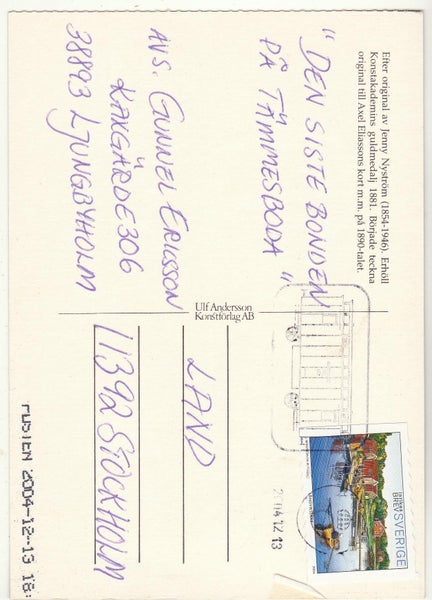 Efter original av Jenny Nyström (1854-1946). Erhöll
Konstakademins guldmedalj 1881. Började teckna
original till Axel Eliassons kort m.m. på 1890-talet.
"DEN SISTE BONDEN
PÅ TÄMMESBODA"
AVS. GUNNEL ERICSSON
KAXGÄRDE 306
38893 LJUNGBYHOLM
Ulf Andersson
Konstförlag AB
LAND
11392 STOCKHOLM
BREV SVERIGE
2004 12 13
POSTEN 2004-12-13 18: